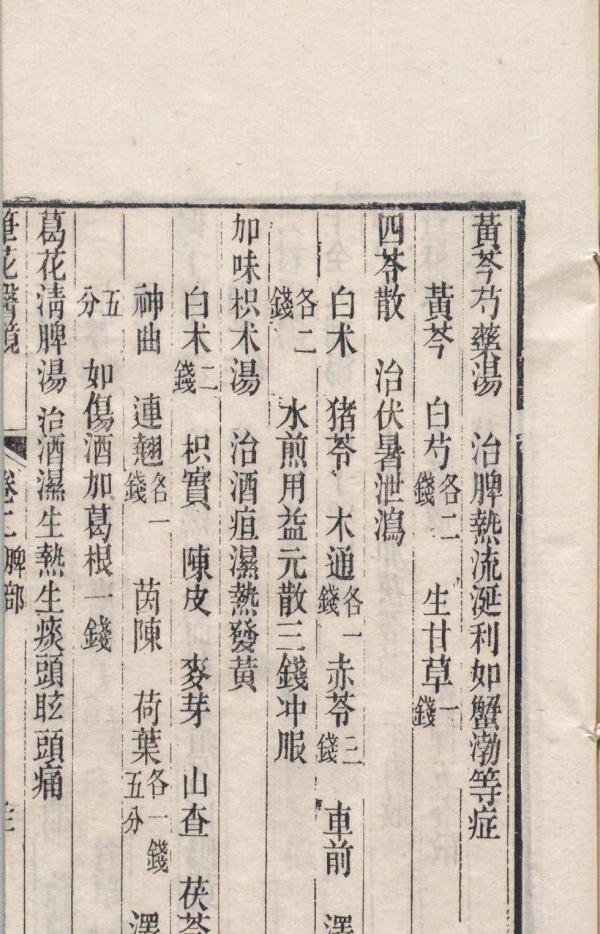 黃芩芍藥湯　治脾熱流涎利如蟹渤等症
黃芩　白芍各二錢　生甘草一錢
四苓散　治伏暑泄瀉
白术　猪苓　木通各一錢　赤苓二錢　車前　澤
各二錢　水煎用益元散三錢冲服
加味枳术湯　治酒疸濕熱發黃
白术二錢　枳實　陳皮　麥芽　山查　茯苓
神曲　連翹各一錢　茵陳　荷葉各一錢五分　澤
五分　如傷酒加葛根一錢
葛花淸脾湯　治酒濕生熱生痰頭眩頭痛
筆花醫鏡　卷二　脾部